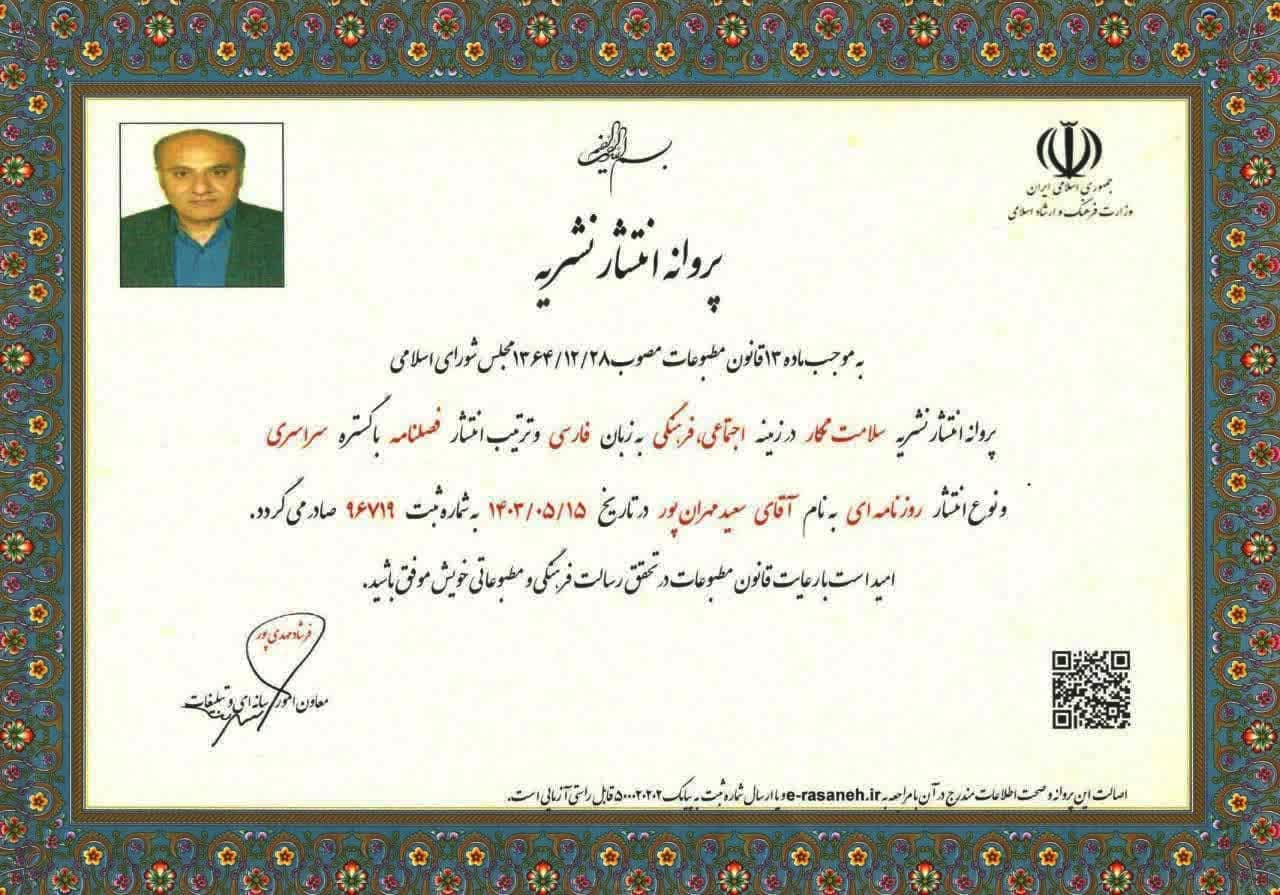 بسم الله الرحمن الرحیم
جمهوری اسلامی ایران
وزارت فرهنگ و ارشاد اسلامی
پروانه انتشار نشریه
به موجب ماده ۱۳ قانون مطبوعات مصوب ۱۳۶۴/۱۲/۲۸ مجلس شورای اسلامی
پروانه انتشار نشریه سلامت نگار در زمینه اجتماعی، فرهنگی به زبان فارسی و ترتیب انتشار فصلنامه با گستره سراسری
و نوع انتشار روزنامه ای به نام آقای سعید مهران پور در تاریخ ۱۴۰۳/۰۵/۱۵ به شماره ثبت ۹۶۷۱۹ صادر می گردد.
امید است با رعایت قانون مطبوعات در تحقق رسالت فرهنگی و مطبوعاتی خویش موفق باشید.
فرشاد مهدی پور
معاون امور رسانه ای و تبلیغات
اصالت این پروانه و صحت اطلاعات مندرج در آن با مراجعه به e-rasaneh.ir و یا ارسال شماره ثبت به پیامک ۵۰۰۰۲۰۲۰۲ قابل راستی آزمایی است.